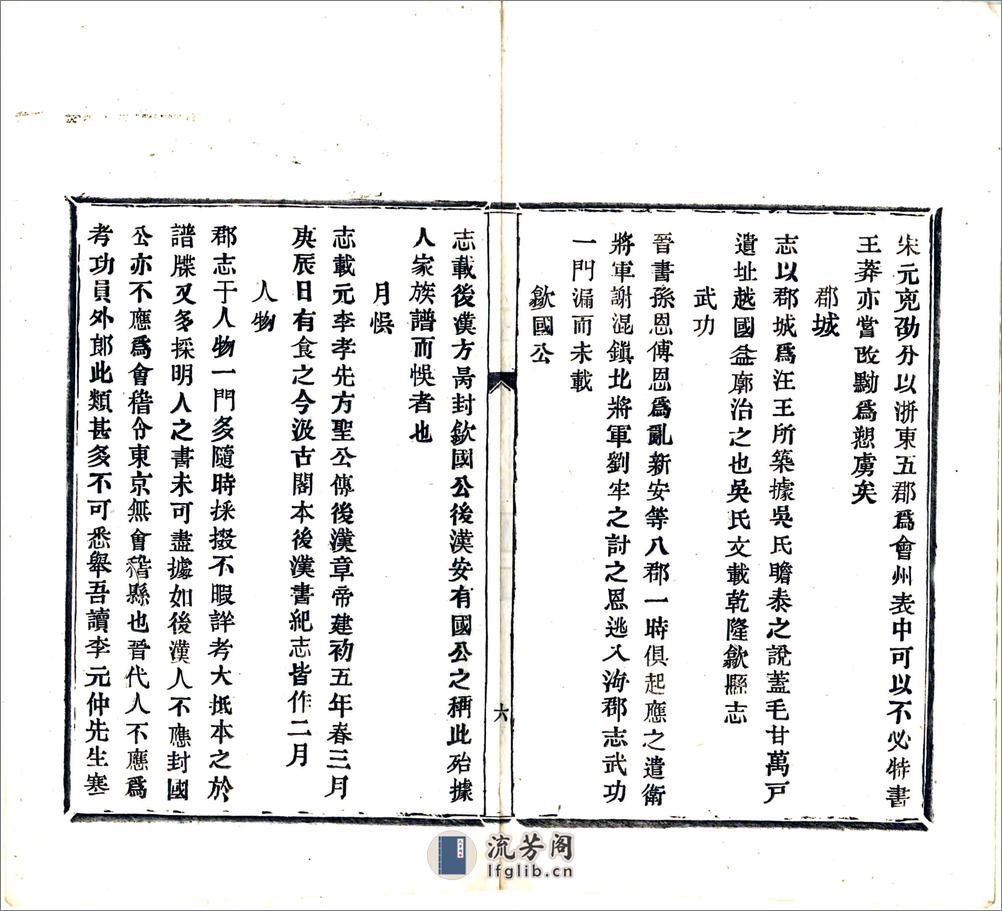 宋元兇劭分以浙東五郡爲會州表中可以不必特書
王莽亦嘗改黝爲愬虜矣
郡城
志以郡城爲汪王所築據吳氏瞻泰之說蓋毛甘萬戸
遺址越國益廓治之也吳氏文載乾隆歙縣志
武功
晉書孫恩傳恩爲亂新安等八郡一時俱起應之遣衛
將軍謝混鎮北將軍劉牢之討之恩逃入海郡志武功
一門漏而未載
歙國公
志載後漢方咼封歙國公後漢安有國公之稱此殆據
人家族譜而悞者也
月悞
志載元李孝先方聖公傳後漢章帝建初五年春三月
庚辰日有食之今汲古閣本後漢書紀志皆作二月
人物
郡志于人物一門多隨時採掇不暇詳考大抵本之於
譜牒又多採明人之書未可盡據如後漢人不應封國
公亦不應爲會稽令東京無會稽縣也晉代人不應爲
考功員外郎此類甚多不可悉舉吾讀李元仲先生寒
六
流芳阁
lfglib.cn